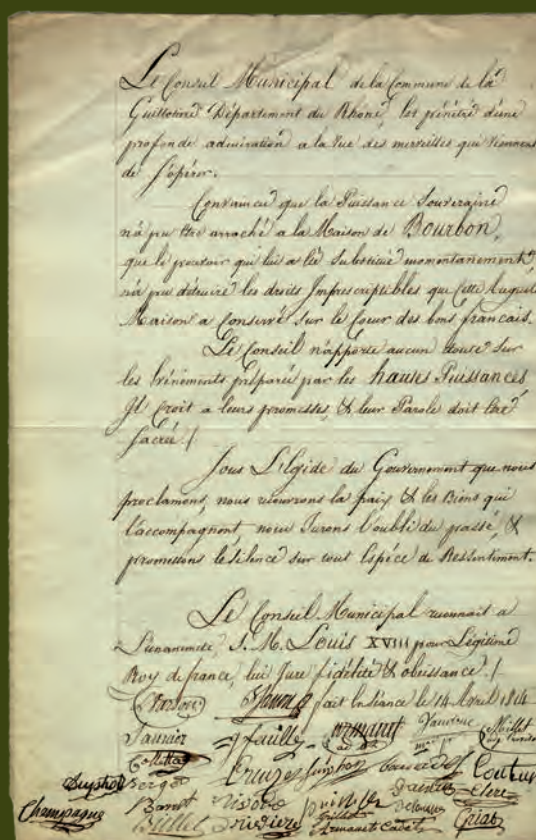 Le Conseil Municipal de la Commune de la
Guillotiere Département du Rhône, est pénétré d'une
profonde admiration a la vue des merveilles qui viennent
de s'opérer.
Convaincu que la Puissance Souveraine
n'a pu être arraché a la Maison de Bourbon,
que le pouvoir qui lui a été substitué momentanement,
n'a pu détruire les droits Imprescriptibles que cette Auguste
Maison a Conservé sur le Coeur des bons francais.
Le Conseil n'apporte aucun doute sur
les Evénements préparée par les hautes Puissances
Il croit a leurs promesses, & leur Parole doit être
Sacrée /
Sous L'Egide du Gouvernement que nous
proclamons, nous recouvrons la paix & les Biens qui
l'accompagnent, nous Jurons l'oubli du passé, &
promettons le silence sur tout Espéce de Ressentiment.
Le Conseil Municipal reconnait a
L'unanimité, S. M. Louis XVIII pour Légitime
Roy de france, lui Jure fidélité & obeissance /
fait En séance le 14 Avril 1814
Saunier Jfailly Millet
Creuzet Couturier
Champagne Billet Criat